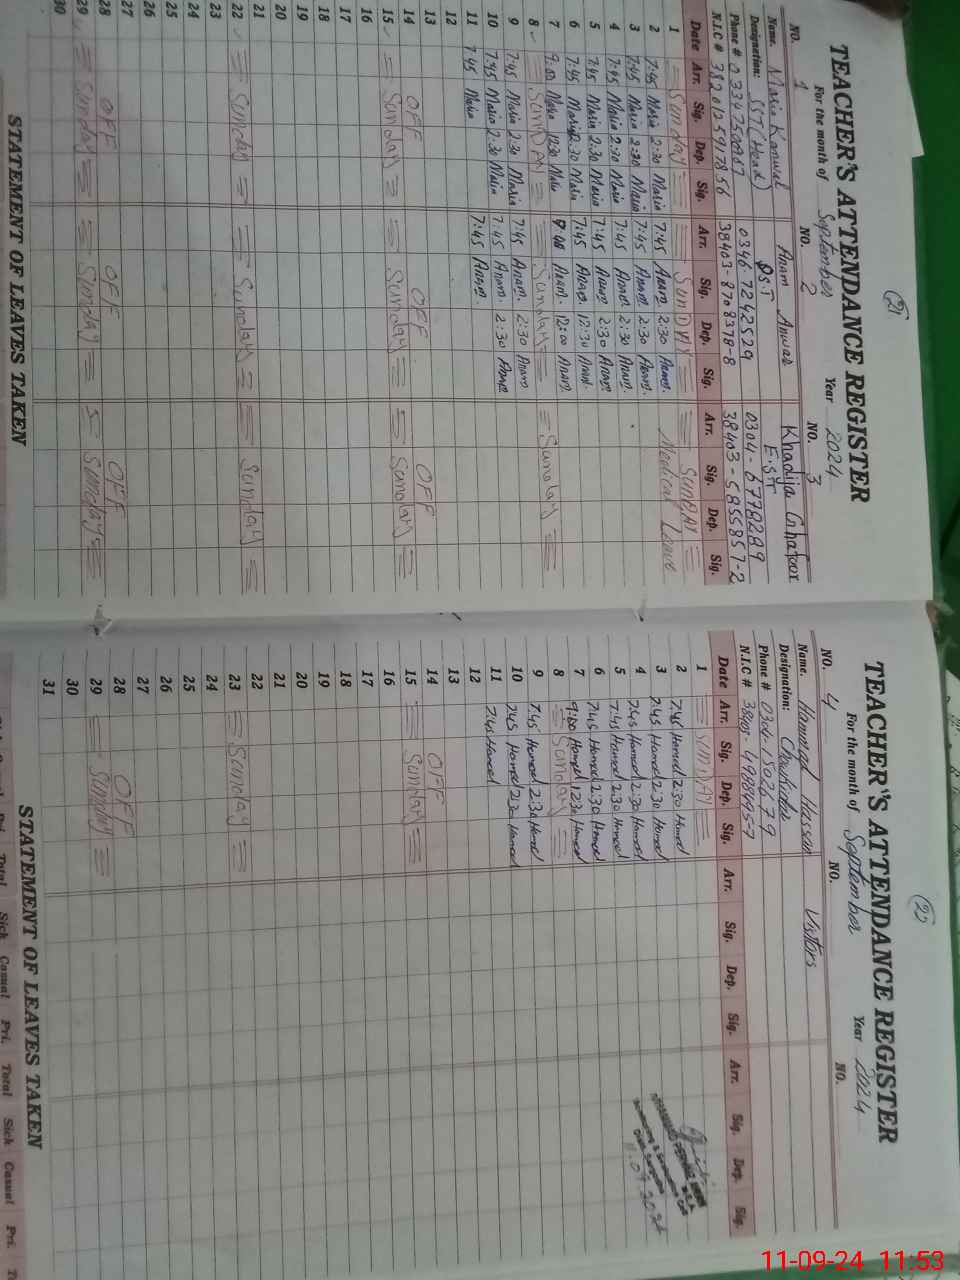 (21)
TEACHER'S ATTENDANCE REGISTER
For the month of September Year 2024
NO. 1 NO. 2 NO. 3
Name. Maria Kanwal Anam Anwar Khadija Ghafoor
Designation: SST (Head) PST E.ST
Phone # 03347500967 0346-7242529 0304-6778289
N.I.C # 38201-2591785 6 38403-8708378-8 38403-5855857-2
Date Arr. Sig. Dep. Sig. Arr. Sig. Dep. Sig. Arr. Sig. Dep. Sig.
1 Sunday SunDAY SunDAY
2 7:45 Maria 2:30 Maria 7:45 Anam. 2:30 Anam. Medical Leave
3 7:45 Maria 2:30 Maria 7:45 Anam. 2:30 Anam.
4 7:45 Maria 2:30 Maria 7:45 Anam. 2:30 Anam.
5 7:45 Maria 2:30 Maria 7:45 Anam. 2:30 Anam.
6 7:45 Maria 12:30 Maria 7:45 Anam. 12:30 Anam.
7 9:00 Maria 12:30 Maria 9:00 Anam. 12:00 Anam.
8 SunDAY Sunday Sunday
9 7:45 Maria 2:30 Maria 7:45 Anam. 2:30 Anam.
10 7:45 Maria 2:30 Maria 7:45 Anam. 2:30 Anam.
11 7:45 Maria 7:45 Anam.
12
13
14 OFF OFF OFF
15 Sunday Sunday Sunday
16
17
18
19
20
21
22 Sunday Sunday Sunday
23
24
25
26
27
28 OFF OFF OFF
29 Sunday Sunday Sunday
30
STATEMENT OF LEAVES TAKEN
(22)
TEACHER'S ATTENDANCE REGISTER
For the month of September Year 2024
NO. 4 NO. NO.
Name. Hassan Visitors
Designation: Chowkidar
Phone # 0304-1502679
N.I.C #
Date Arr. Sig. Dep. Sig. Arr. Sig. Dep. Sig. Arr. Sig. Dep. Sig.
1 SunDAY
2 7:45 Hamad 2:30 Hamad
3 7:45 Hamad 2:30 Hamad
4 7:45 Hamad 2:30 Hamad
5 7:45 Hamad 2:30 Hamad
6 7:45 Hamad 2:30 Hamad
7 9:00 Hamad 12:30 Hamad
8 Sunday
9 7:45 Hamad 2:30 Hamad
10 7:45 Hamad 2:30 Hamad
11 7:45 Hamad
12
13
14 OFF
15 Sunday
16
17
18
19
20
21
22
23 Sunday
24
25
26
27
28 OFF
29 Sunday
30
31
STATEMENT OF LEAVES TAKEN
Total Sick Casual Pri. Total Sick Casual Pri.
11-09-24 11:53